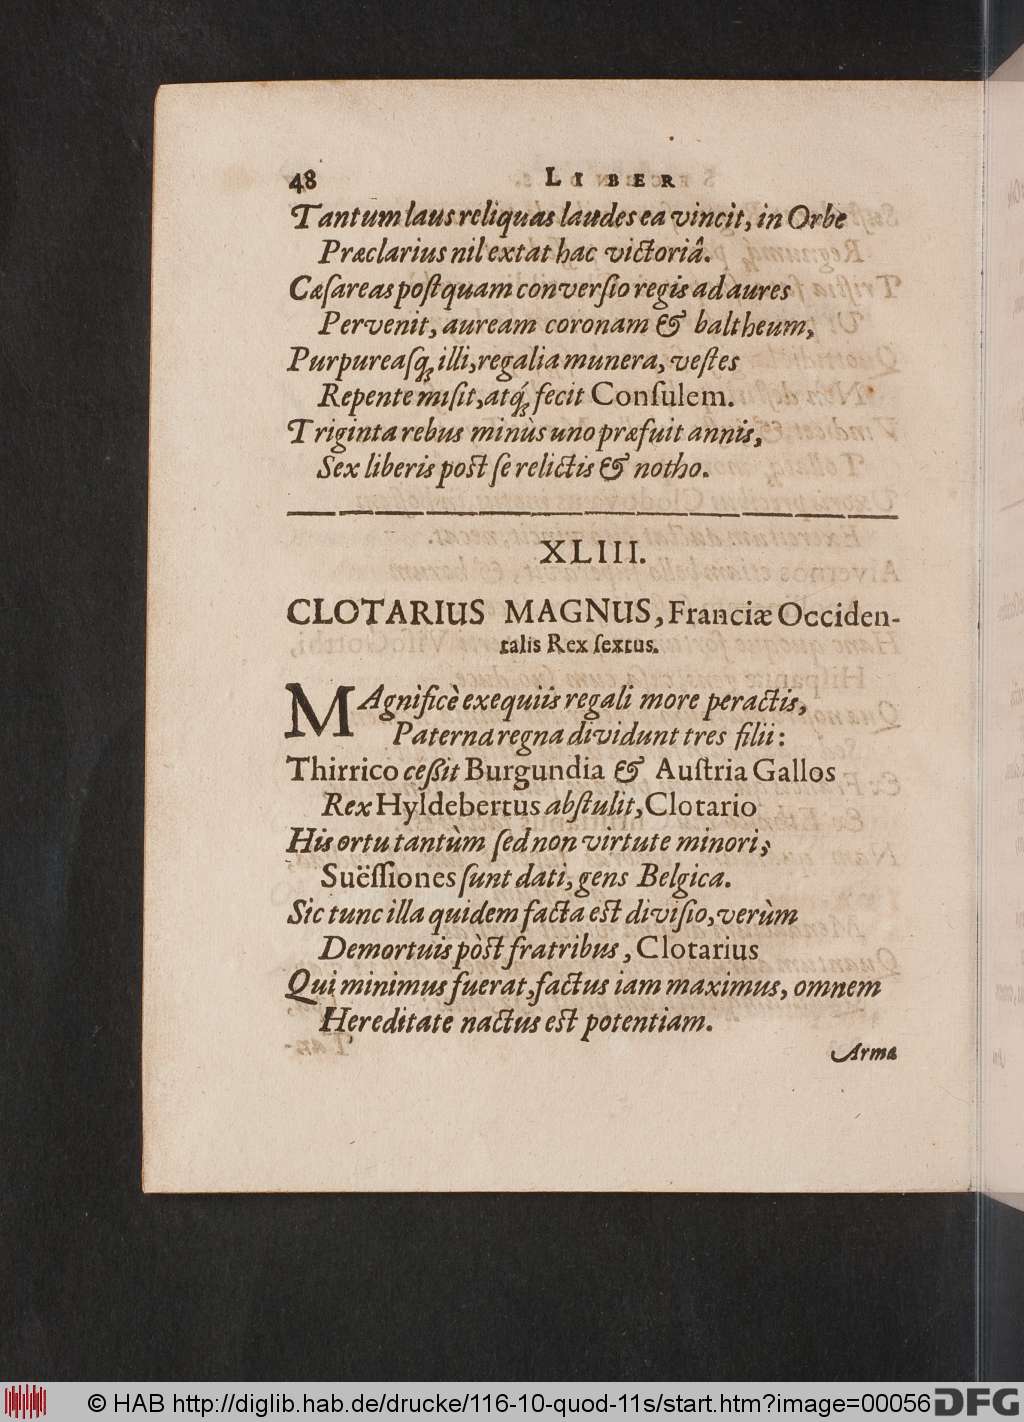 48 LIBER
Tantum laus reliquas laudes ea vincit, in Orbe
Præclarius nil extat hac victoriâ.
Cæſareas poſtquam converſio regis ad aures
Pervenit, auream coronam & baltheum,
Purpureaſq́; illi, regalia munera, veſtes
Repente miſit, atq́; fecit Conſulem.
Triginta rebus minùs uno præfuit annis,
Sex liberis poſt ſe relictis & notho.
XLIII.
CLOTARIUS MAGNUS, Franciæ Occiden-
talis Rex ſextus.
MAgnificè exequiis regali more peractis,
Paterna regna dividunt tres filii:
Thirrico ceßit Burgundia & Auſtria Gallos
Rex Hyldebertus abſtulit, Clotario
His ortu tantùm ſed non virtute minori,
Suëſſiones ſunt dati, gens Belgica.
Sic tunc illa quidem facta eſt diviſio, verùm
Demortuis pòſt fratribus, Clotarius
Qui minimus fuerat, factus iam maximus, omnem
Hereditate nactus eſt potentiam.
Arma
© HAB http://diglib.hab.de/drucke/116-10-quod-11s/start.htm?image=00056
DFG